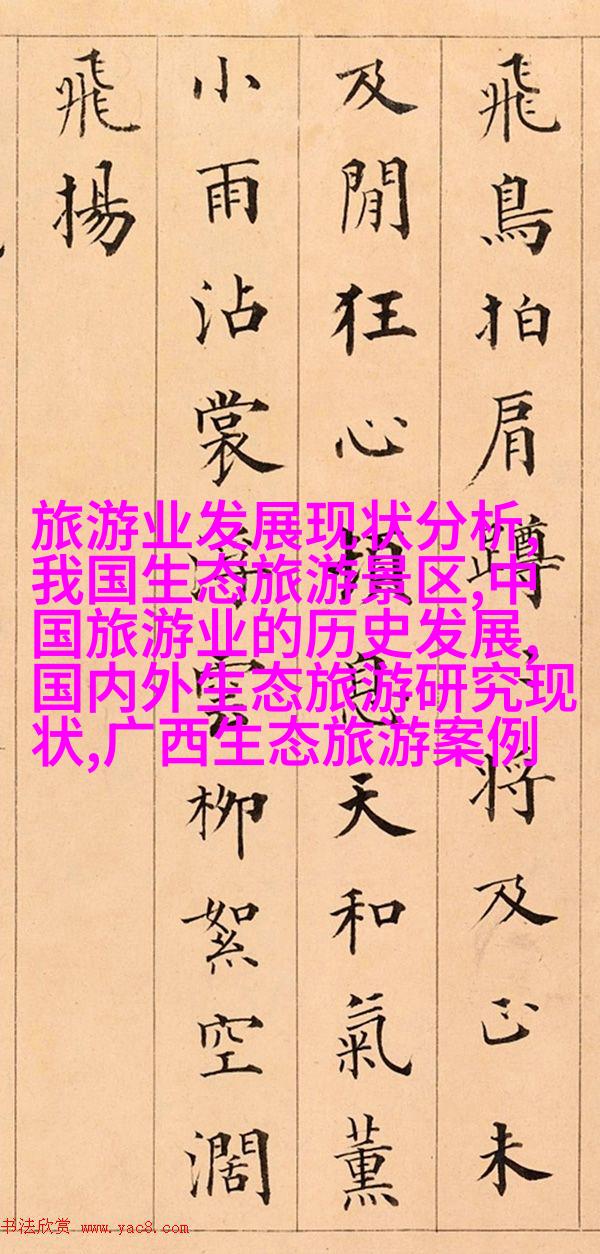 飛鳥拍肩蹲〻將及未
及閒狂心息天和氣薰
小雨沾裳海雲柳絮空濶
飛揚
旅游业发展现状分析,
我国生态旅游景区,中
国旅游业的历史发展,
国内外生态旅游研究现
状,广西生态旅游案例
书法欣赏 www.yac8.com